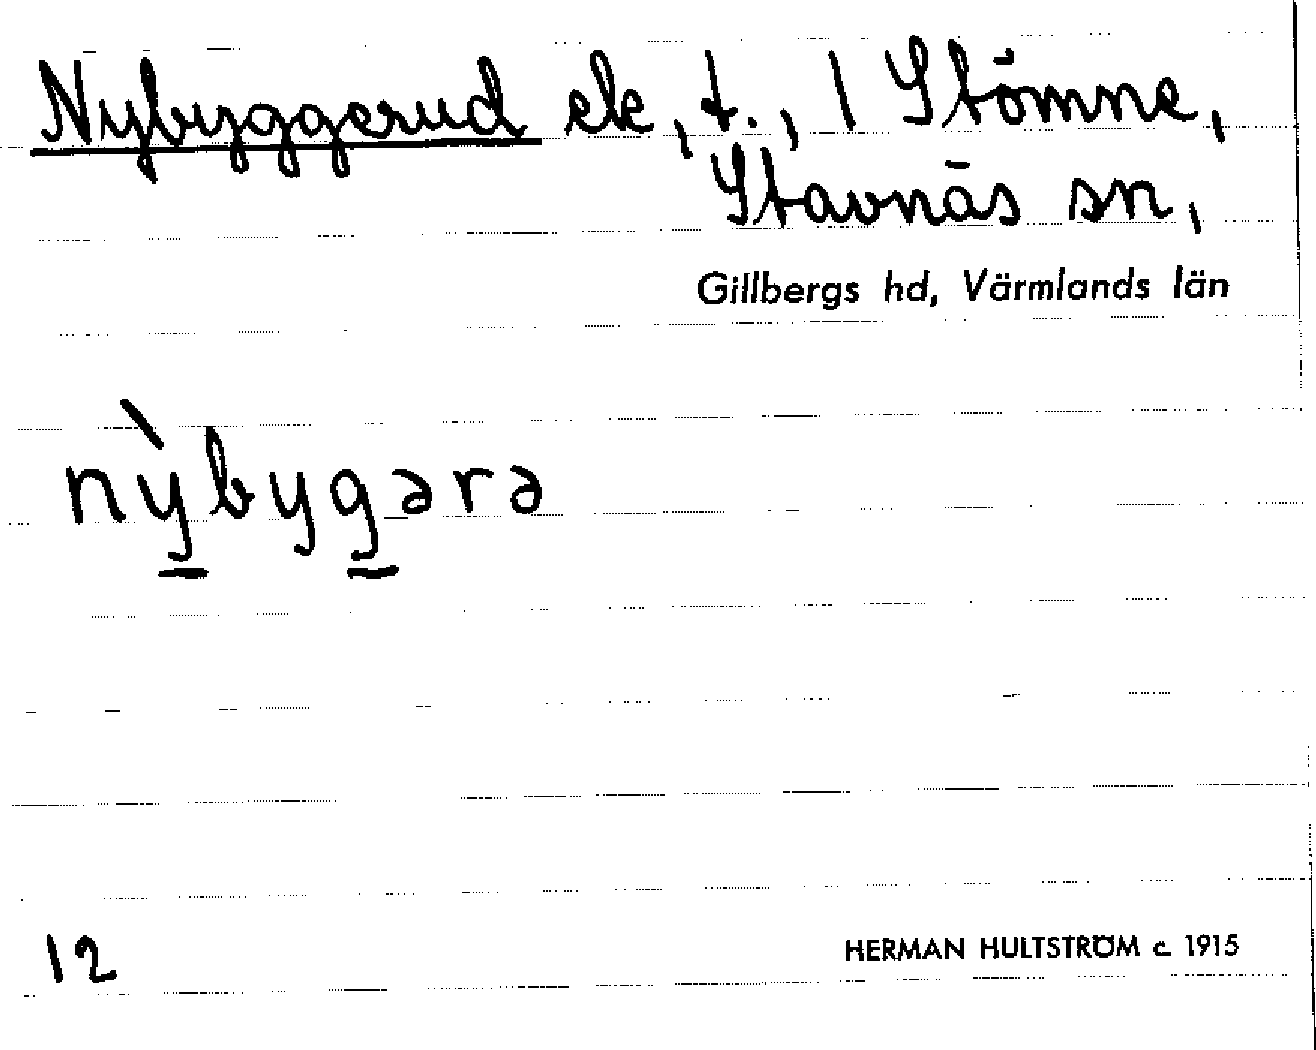 Nybyggerud ek, t., 1 Stömne,
Stavnäs sn,
Gillbergs hd, Värmlands län
nỳ̱byg̱ərə
12
HERMAN HULTSTRÖM c. 1915